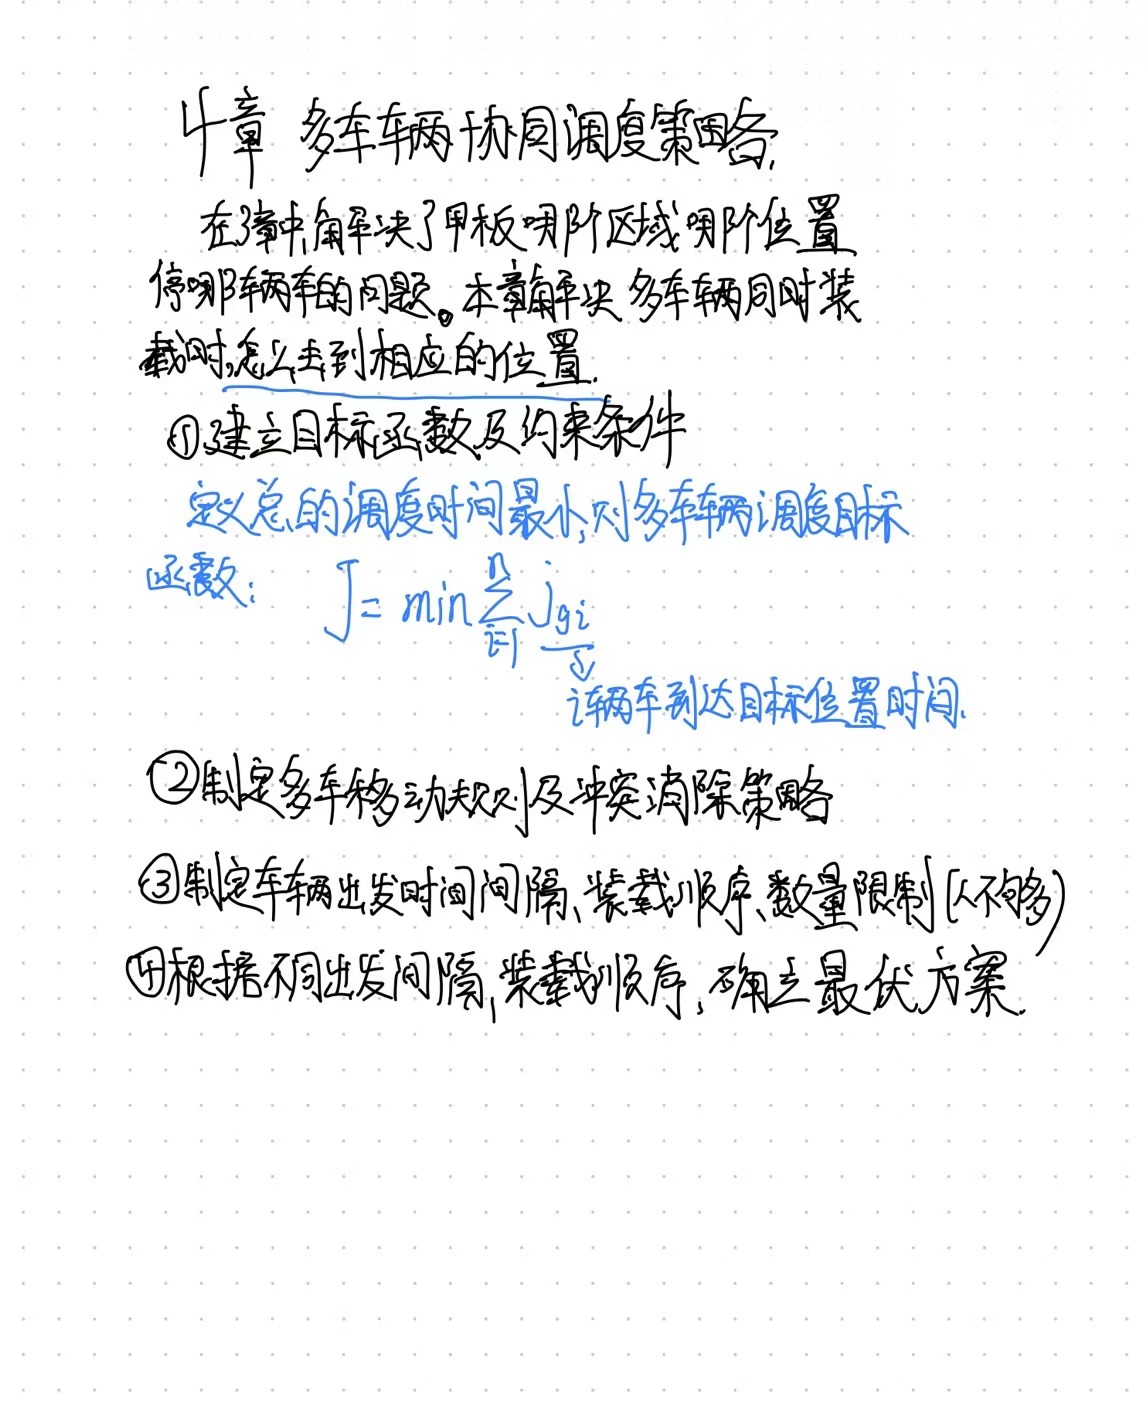 4章 多车车辆协同调度策略.
在3章中,解决了甲板哪个区域哪个位置
停哪辆车的问题。本章解决多车辆同时装
载时,怎么去到相应的位置.
①建立目标函数及约束条件
定义总的调度时间最小,则多车车辆调度目标
函数:
J = min \sum_{i=1}^{n} j_{gi}
i车辆车到达目标位置时间.
②制定多车移动规则及冲突消除策略
③制定车辆出发时间间隔、装载顺序、数量限制(人不够多)
④根据不同出发间隔,装载顺序,确立最优方案.